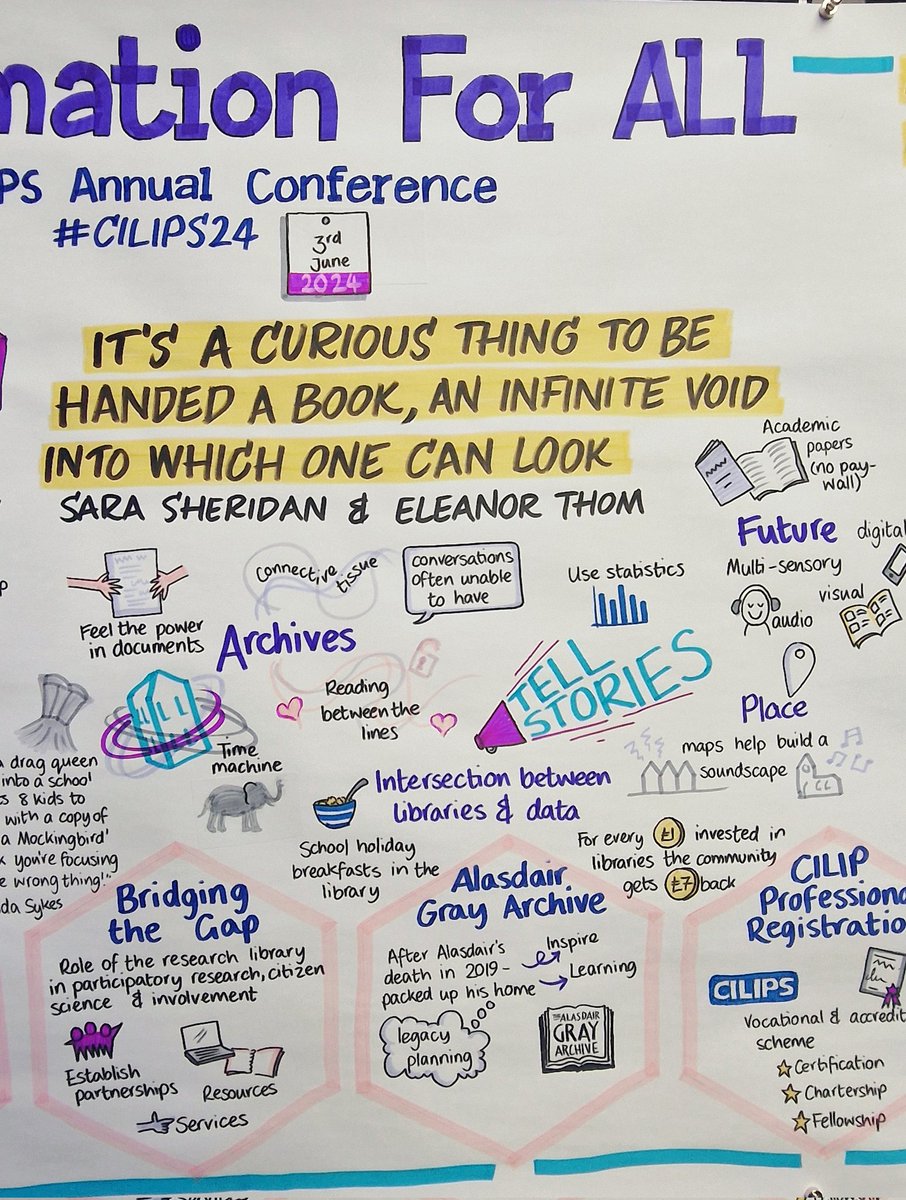 mation For ALL
PS Annual Conference
#CILIPS24
3rd
June
2024
IT'S A CURIOUS THING TO BE
HANDED A BOOK, AN INFINITE VOID
INTO WHICH ONE CAN LOOK
SARA SHERIDAN & ELEANOR THOM
Academic
papers
(no pay-
wall)
Future
digital
Multi-sensory
visual
audio
Feel the power
in documents
Connective tissue
conversations
often unable
to have
Use statistics
Archives
Reading
between the
lines
TELL
STORIES
Place
maps help build a
soundscape
Time
machine
drag queen
into a school
s 8 kids to
with a copy of
a Mockingbird'
k you're focusing
e wrong thing!"
da Sykes
Intersection between
libraries & data
School holiday
breakfasts in the
library
For every £1 invested in
libraries the community
gets £7 back
Bridging
the Gap
Role of the research library
in participatory research, citizen
science & involvement
Establish
partnerships
Resources
Services
Alasdair
Gray Archive
After Alasdair's
death in 2019-
packed up his home
Inspire
Learning
legacy
planning
THE ALASDAIR
GRAY
ARCHIVE
CILIP
Professiona
Registratio
CILIPS
Vocational & accredit
scheme
Certification
Chartership
Fellowship